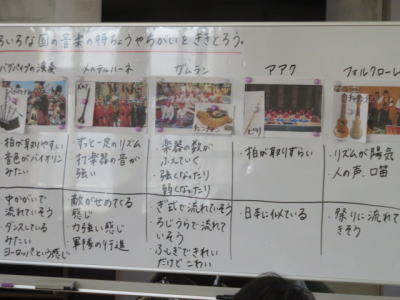 ろな国の音楽の特ちょうやちがいをききとろう。
バグパイプの演奏
メヘテルハーネ
ガムラン
アアク
フォルクローレ
拍が取りやすい
音色がバイオリン
みたい
ずっと一定のリズム
打楽器の音が
強い
・楽器の数が
ふえていく
・強くなったり
弱くなったり
・拍が取りずらい
リズムが陽気
・人の声、口笛
中かがいで
流れていそう
ダンスしている
みたい
ヨーロッパという感じ
敵がせめてくる
感じ
力強い感じ
・軍隊の行進
ぎ式で流れていそう
・ろじうらで流れて
いそう
・ふしぎできれい
だけどこわい
・日本に似ている
・祭りに流れて
きそう